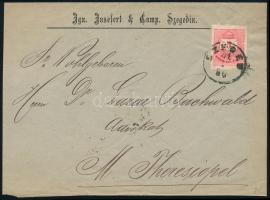 Ign. Jnselert & Comp. Szegedin.
SZEGED
80
Sr. Wohlgeboren
Herrn Dr. Lazar Buchwald
Advokat
M. Theresiopel